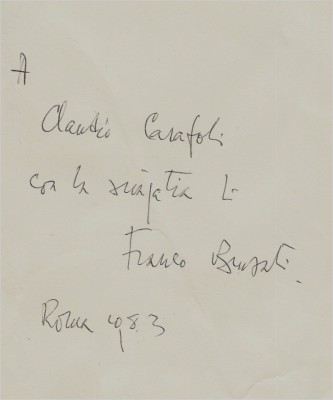 A
Claudio Carafoli
con la simpatia di
Franco Brusati.
Roma 1983